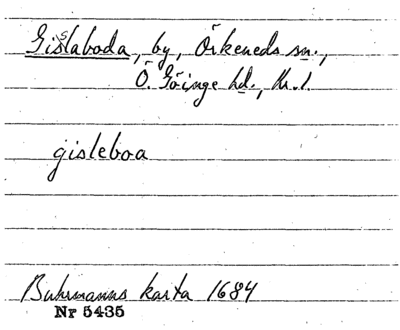 Gisslaboda, by, Örkeneds sn.,
Ö. Göinge hd., Kr. l.
gisleboa
Buhrmanns karta 1684
Nr 5435